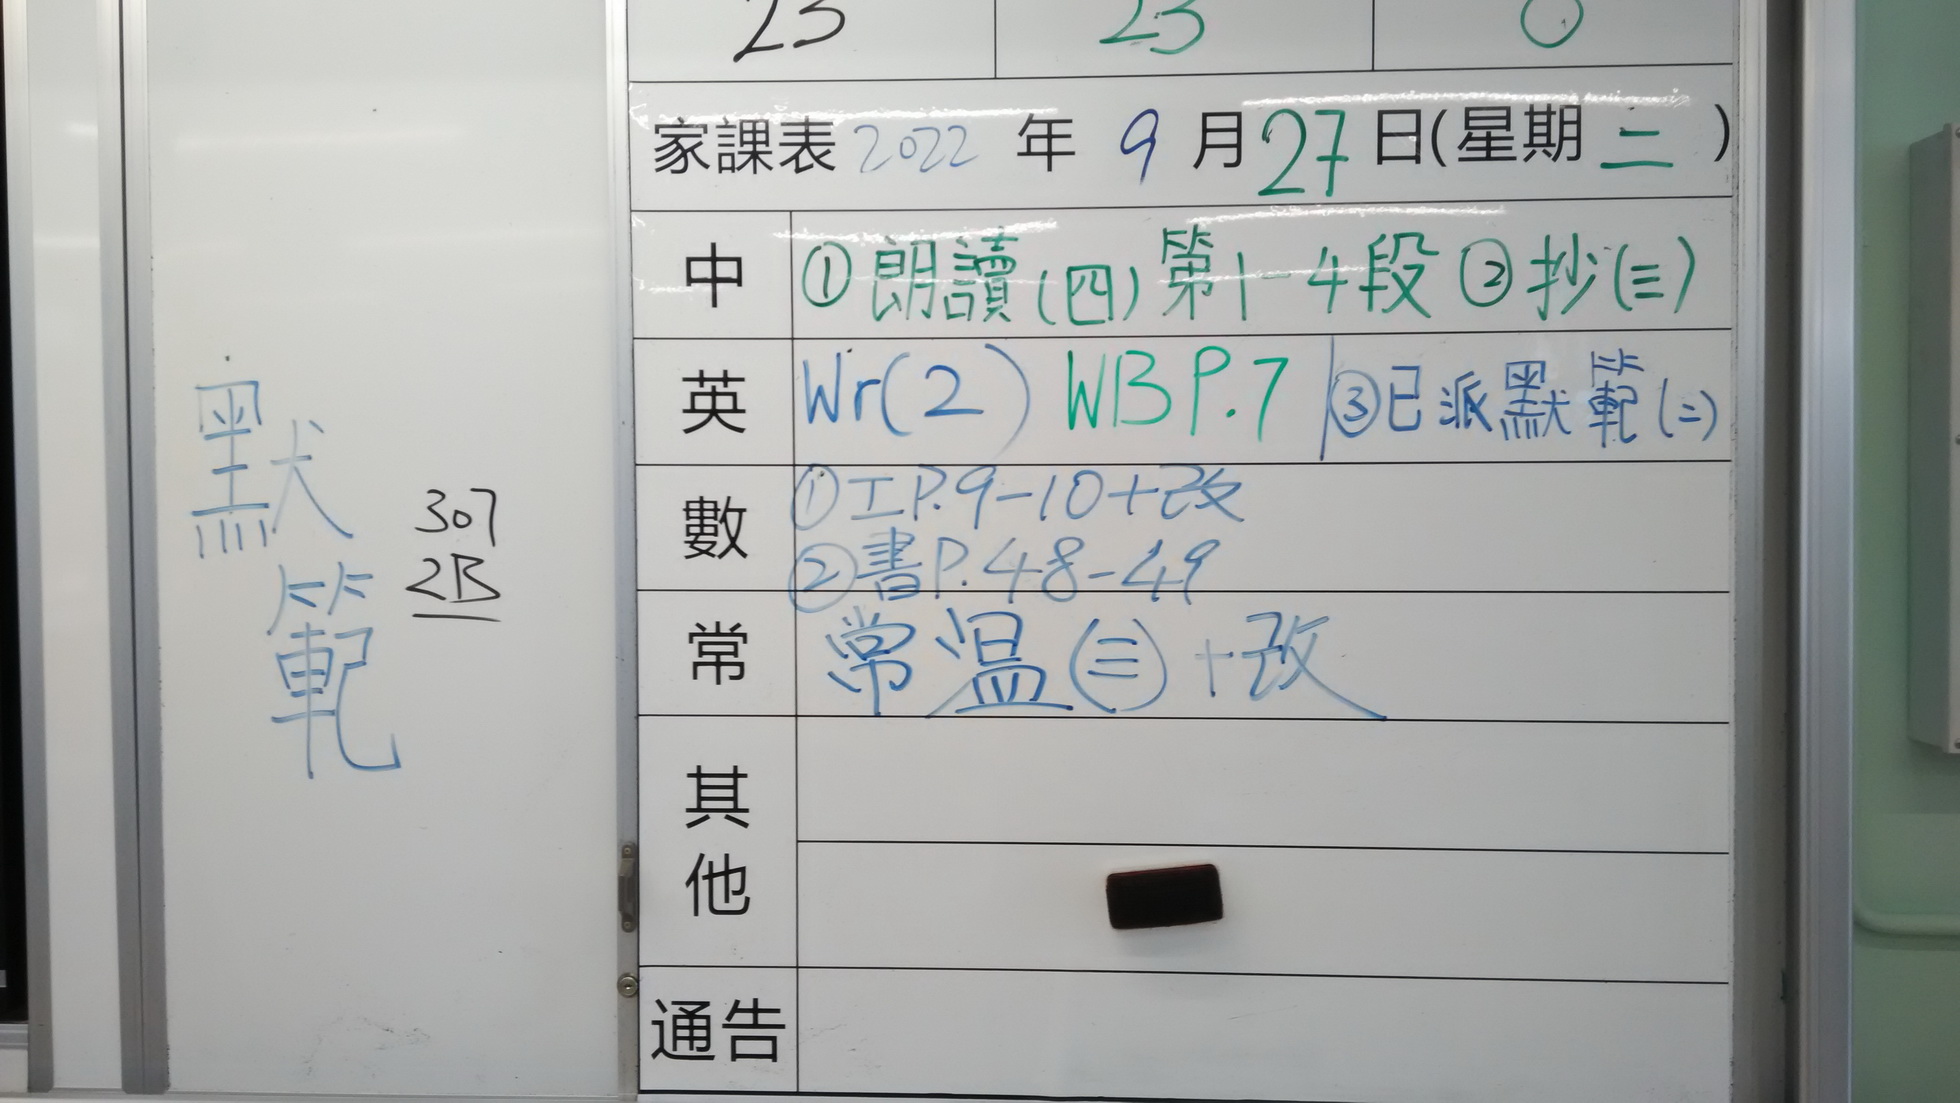 23 23 0
家課表 2022 年 9 月 27 日(星期 二 )
中 ①朗讀(四)第1-4段 ②抄(三)
英 Wr(2) WB P.7 ③已派默範(二)
數 ①工P.9-10+改
②書P.48-49
常 常溫(三)+改
其他
通告
默範
307
2B